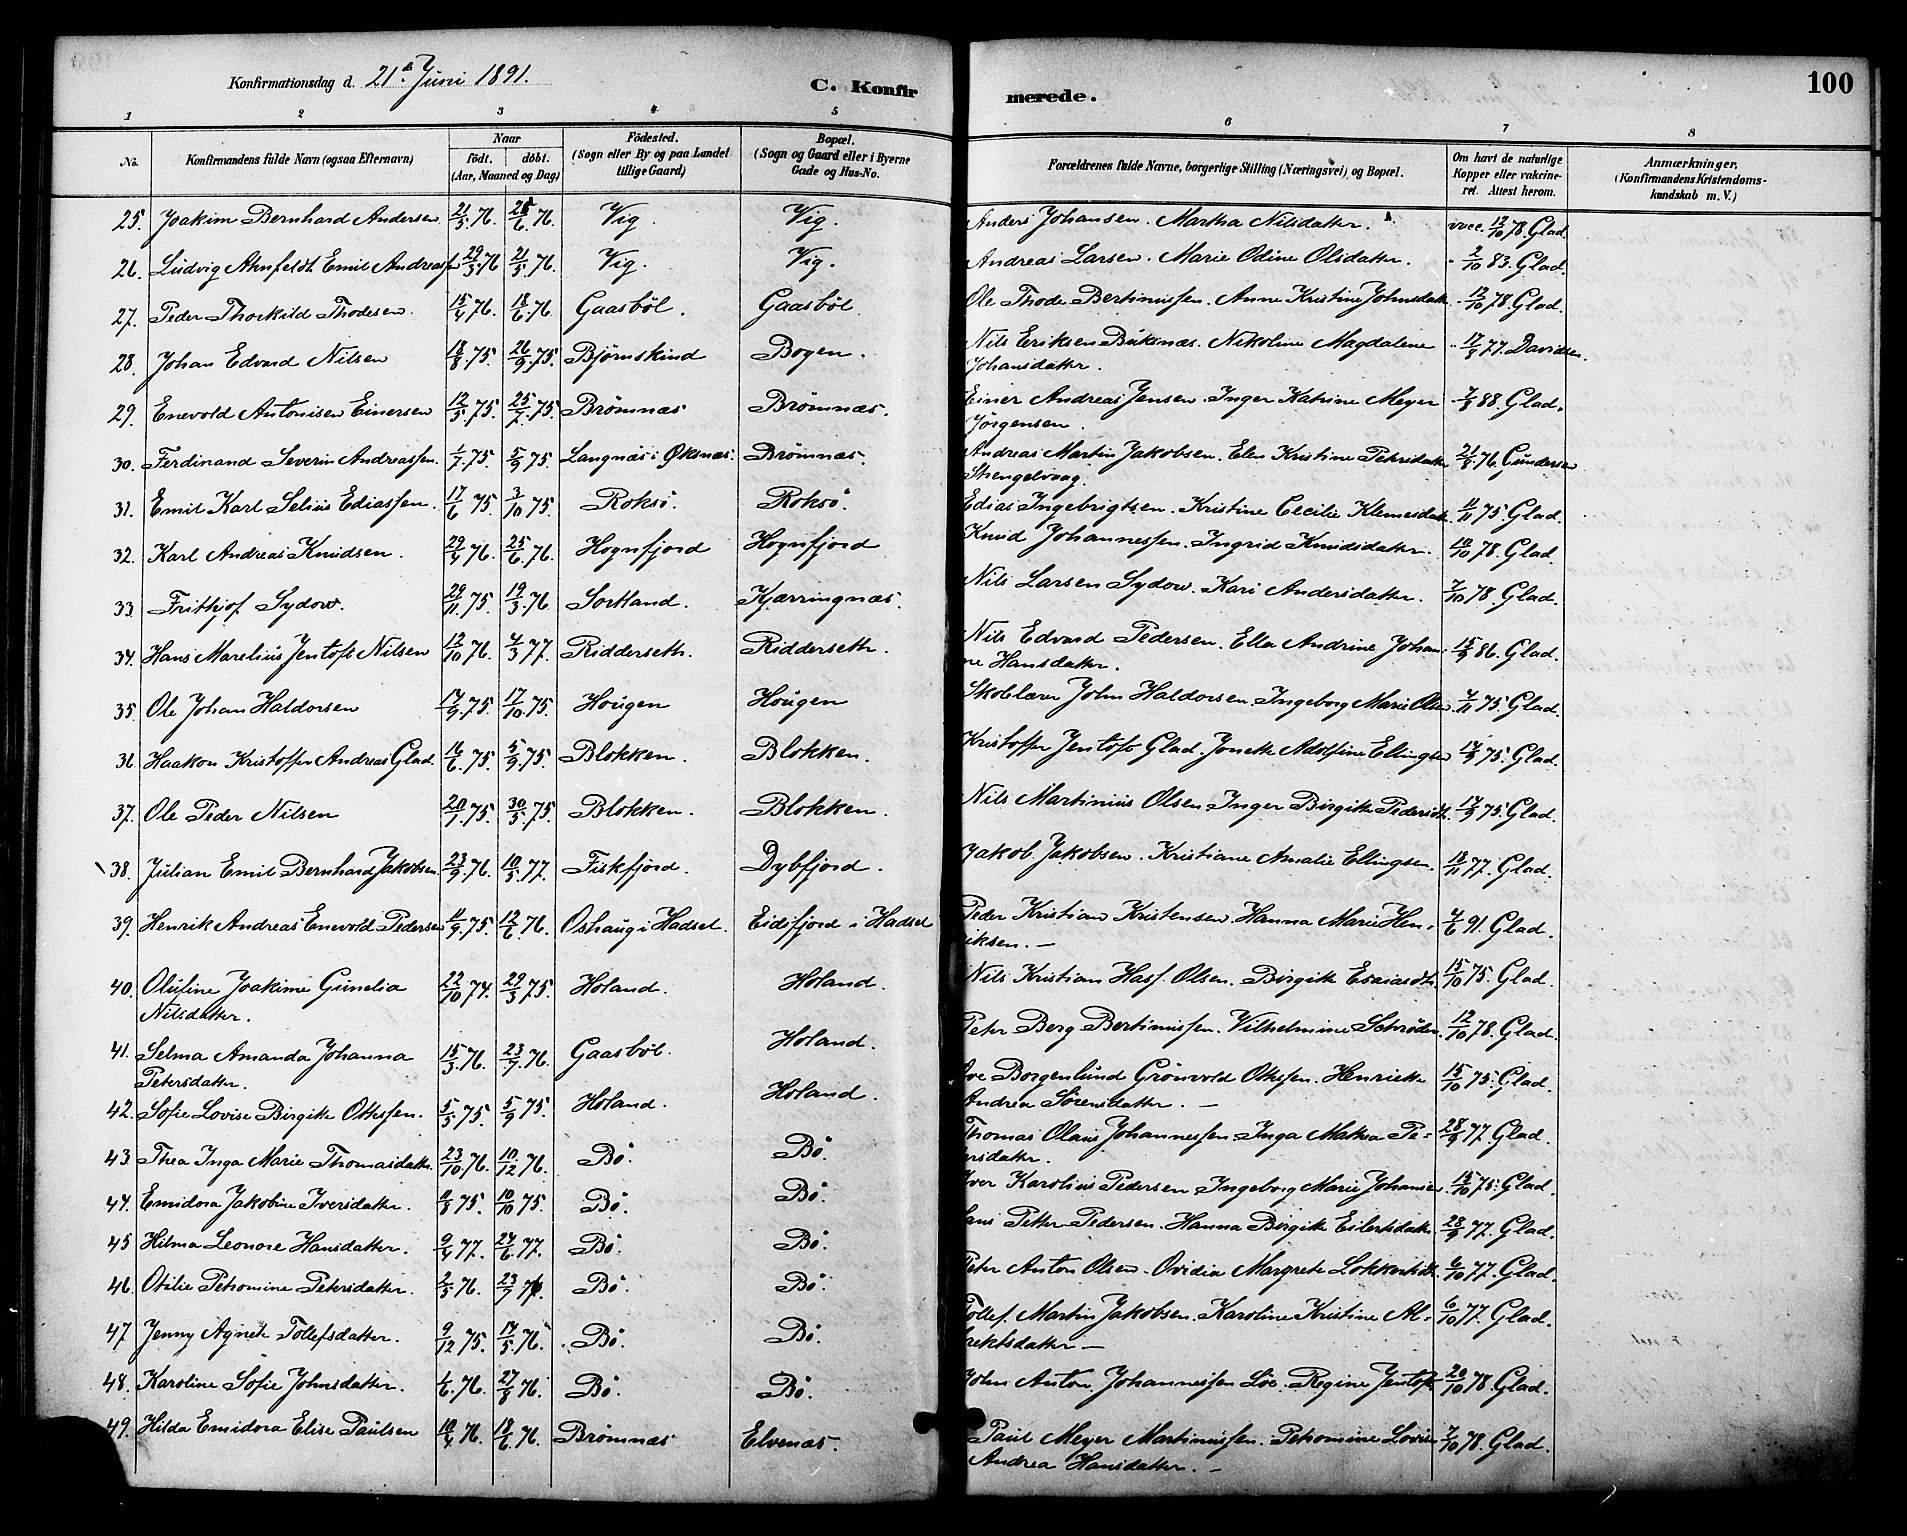 Konfirmationsdag d. 21de Juni 1891.
C. Konfirmerede.
100
1 2 3 4 5 6 7 8
No. Konfirmandens fulde Navn (ogsaa Efternavn) Naar födt. döbt. (Aar, Maaned og Dag) Födested. (Sogn eller By og paa Landet tillige Gaard) Bopæl. (Sogn og Gaard eller i Byerne Gade og Hus-No. Forældrenes fulde Navne, borgerlige Stilling (Næringsvei) og Bopæl. Om havt de naturlige Kopper eller vakcineret. Attest herom. Anmærkninger. (Konfirmandens Kristendomskundskab m. V.)
25. Joakim Bernhard Andersen 21/5 76. 25/6 76. Vig. Vig. Anders Johansen. Martha Nilsdatter. vacc. 12/10 78. Glad.
26. Ludvig Ahnfeldt Emil Andreasf. 29/3 76 21/5 76. Vig. Vig. Andreas Larsen. Marie Odine Olsdatter. 2/10 83. Glad.
27. Peder Thorkild Thodesen. 15/4 76. 18/6 76. Gaasböl. Gaasböl Ole Thode Bertinussen. Anne Kristine Johnsdatt. 12/10 78. Glad.
28. Johan Edvard Nilsen 18/8 75. 26/9 75. Bjørnskind Bogen. Nils Eriksen Buknæs. Nikoline Magdalene 17/9 77. Davidsen.
Johansdatter.
29. Enevold Antonisen Einersen 12/5 75. 25/7 75. Brömnæs Brömnæs. Einer Andreas Jensen. Inger Katrine Meyer 7/8 88. Glad.
Jörgensen.
30. Ferdinand Severin Andreassen. 1/7 75. 5/9 75. Langnæs i Øksnæs. Brömnæs. Andreas Martin Jakobsen. Elen Kristine Petersdatter 21/8 76. Gundersen
Stengelvaag.
31. Emil Karl Selius Ediassen. 17/6 75. 3/10 75. Roksö. Roksö. Edias Ingebrigtsen. Kristine Cecilie Klemesdatt. 11/11 75 Glad.
32. Karl Andreas Knudsen. 29/4 76. 25/6 76. Hognfjord Hognfjord Knud Johannessen. Ingrid Knudsdatter. 10/10 78. Glad.
33. Frithjof Sydow. 29/11 75. 19/3 76 Sortland. Kjærringnæs. Nils Larsen Sydow. Kari Andersdatter. 7/10 78. Glad.
34. Hans Marelius Jentoft Nilsen 12/10 76. 4/3 77. Ridderseth. Ridderseth. Nils Edvard Pedersen. Ella Andrine Johan- 15/9 86. Glad.
ne Hansdatter.
35. Ole Johan Haldorsen 14/9 75. 17/10 75. Hougen Hougen Skolelærer John Haldorsen. Ingeborg Marie Olsen. 4/11 75. Glad.
36. Haakon Kristoffer Andreas Glad. 16/6 75. 5/9 75. Blokken. Blokken. Kristoffer Jentoft Glad. Jonette Adolfine Ellingsen 14/9 75. Glad.
37. Ole Peder Nilsen 20/1 75. 30/5 75. Blokken. Blokken. Nils Martinius Olsen. Inger Birgitte Pedersdt. 14/9 75. Glad.
38. Julian Emil Bernhard Jakobsen. 23/9 76. 10/5 77. Fiskfjord. Dybfjord. Jakob Jakobsen. Kristiane Amalie Ellingsen. 18/11 77. Glad.
39. Henrik Andreas Enevold Pedersen 11/9 75. 12/6 76. Oshaug i Hadsel. Eidsfjord i Hadsel Peder Kristian Kristensen Hanna Marie Hen- 4/6 91. Glad.
riksen. —
40. Olufine Joakime Gunelia 22/10 74. 29/3 75. Holand. Holand. Nils Kristian Hass Olsen. Birgitte Esaiasdt. 15/10 75. Glad.
Nilsdatter.
41. Selma Amanda Johanna 15/3 76. 23/7 76. Gaasböl. Holand. Peter Berg Bertinussen. Vilhelmine Schrøder. 12/10 78. Glad.
Petersdatter.
42. Sofie Lovise Birgitte Ottessen. 5/5 75. 5/9 75. Holand. Holand. Ove Borgenlund Grönvold Ottessen. Henriette 15/10 75. Glad.
Andrea Sörensdatter. —
43. Thea Inga Marie Thomasdatter. 23/10 76. 10/12 76. Bö. Bö. Thomas Olaus Johannessen Inga Mathea Pe- 28/9 77. Glad.
tersdatter.
44. Emidora Jakobine Iversdatter. 11/8 75. 10/10 75. Bö. Bö. Iver Karolius Pedersen Ingeborg Marie Johansen. 15/10 75. Glad.
45 Hilma Leonore Hansdatter. 9/4 77. 24/6 77. Bö. Bö. Hans Petter Pedersen. Hanna Birgitte Eilertsdatter 28/9 77. Glad.
46. Otilie Petromine Petersdatter. 2/5 76. 23/7 76. Bö. Bö. Peter Anton Olsen. Ovidia Margrete 6/10 77. Glad.
47 Jenny Agnete Tollefsdatter. 9/12 75. 14/5 76. Bö. Bö. Tollef Martin Jakobsen. Karoline Kristine Al- 6/10 77. Glad.
briktsdatter —
48. Karoline Sofie Johnsdatter. 4/6 76. 27/8 76. Bö. Bö. John Anton Johannessen Löe. Regine Jentoft 20/10 78 Glad.
49. Hilda Emidora Elise Paulsen 10/4 76. 18/6 76. Brömnæs Elvenæs. Paul Meyer Martinussen. Petromine Lovise 7/10 78. Glad.
Andrea Hansdatter. —